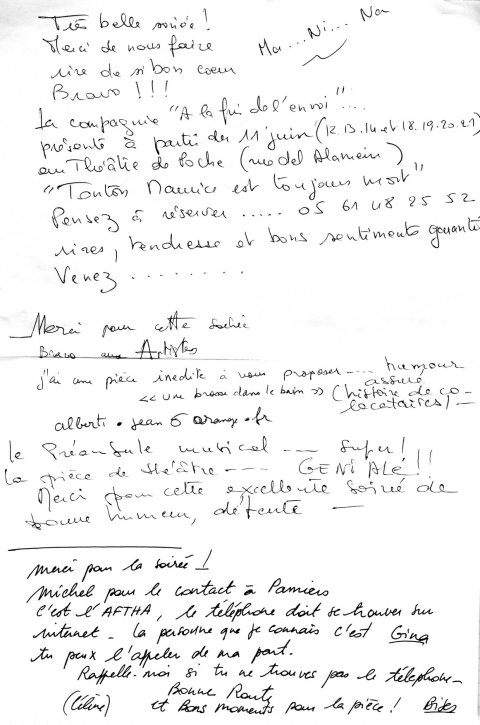 Très belle soirée !
Merci de nous faire
rire de si bon coeur
Bravo !!!
Ma...Ni... Na
La compagnie "A la fin de l'envoi"...
présente à partir du 11 juin (12.13.14 et 18.19.20.21)
au Théâtre de Poche (rue del Alamein)
"Tonton Maurice est toujours mort"
Pensez à réserver ..... 05 61 48 25 52
rires, tendresse et bons sentiments garantis
Venez ........
Merci pour cette soirée
Bravo aux Artistes
j'ai une pièce inedite à vous proposer .... humour
assuré
<< une brasse dans le bain >> (histoire de co-
locataires) -
alberti.jean6 orange.fr
le Préambule musical --- Super !
la pièce de théâtre --- GENIALE !!
Merci pour cette excellente soirée de
bonne humeur, détente —
merci pour la soirée !
Michel pour le contact à Pamiers
C'est l'AFTHA, le téléphone doit se trouver sur
internet - la personne que je connais c'est Gina
tu peux l'appeler de ma part.
Rappelle-moi si tu ne trouves pas le telephone -
Bonne Route
(Céline) et Bons moments pour la pièce !